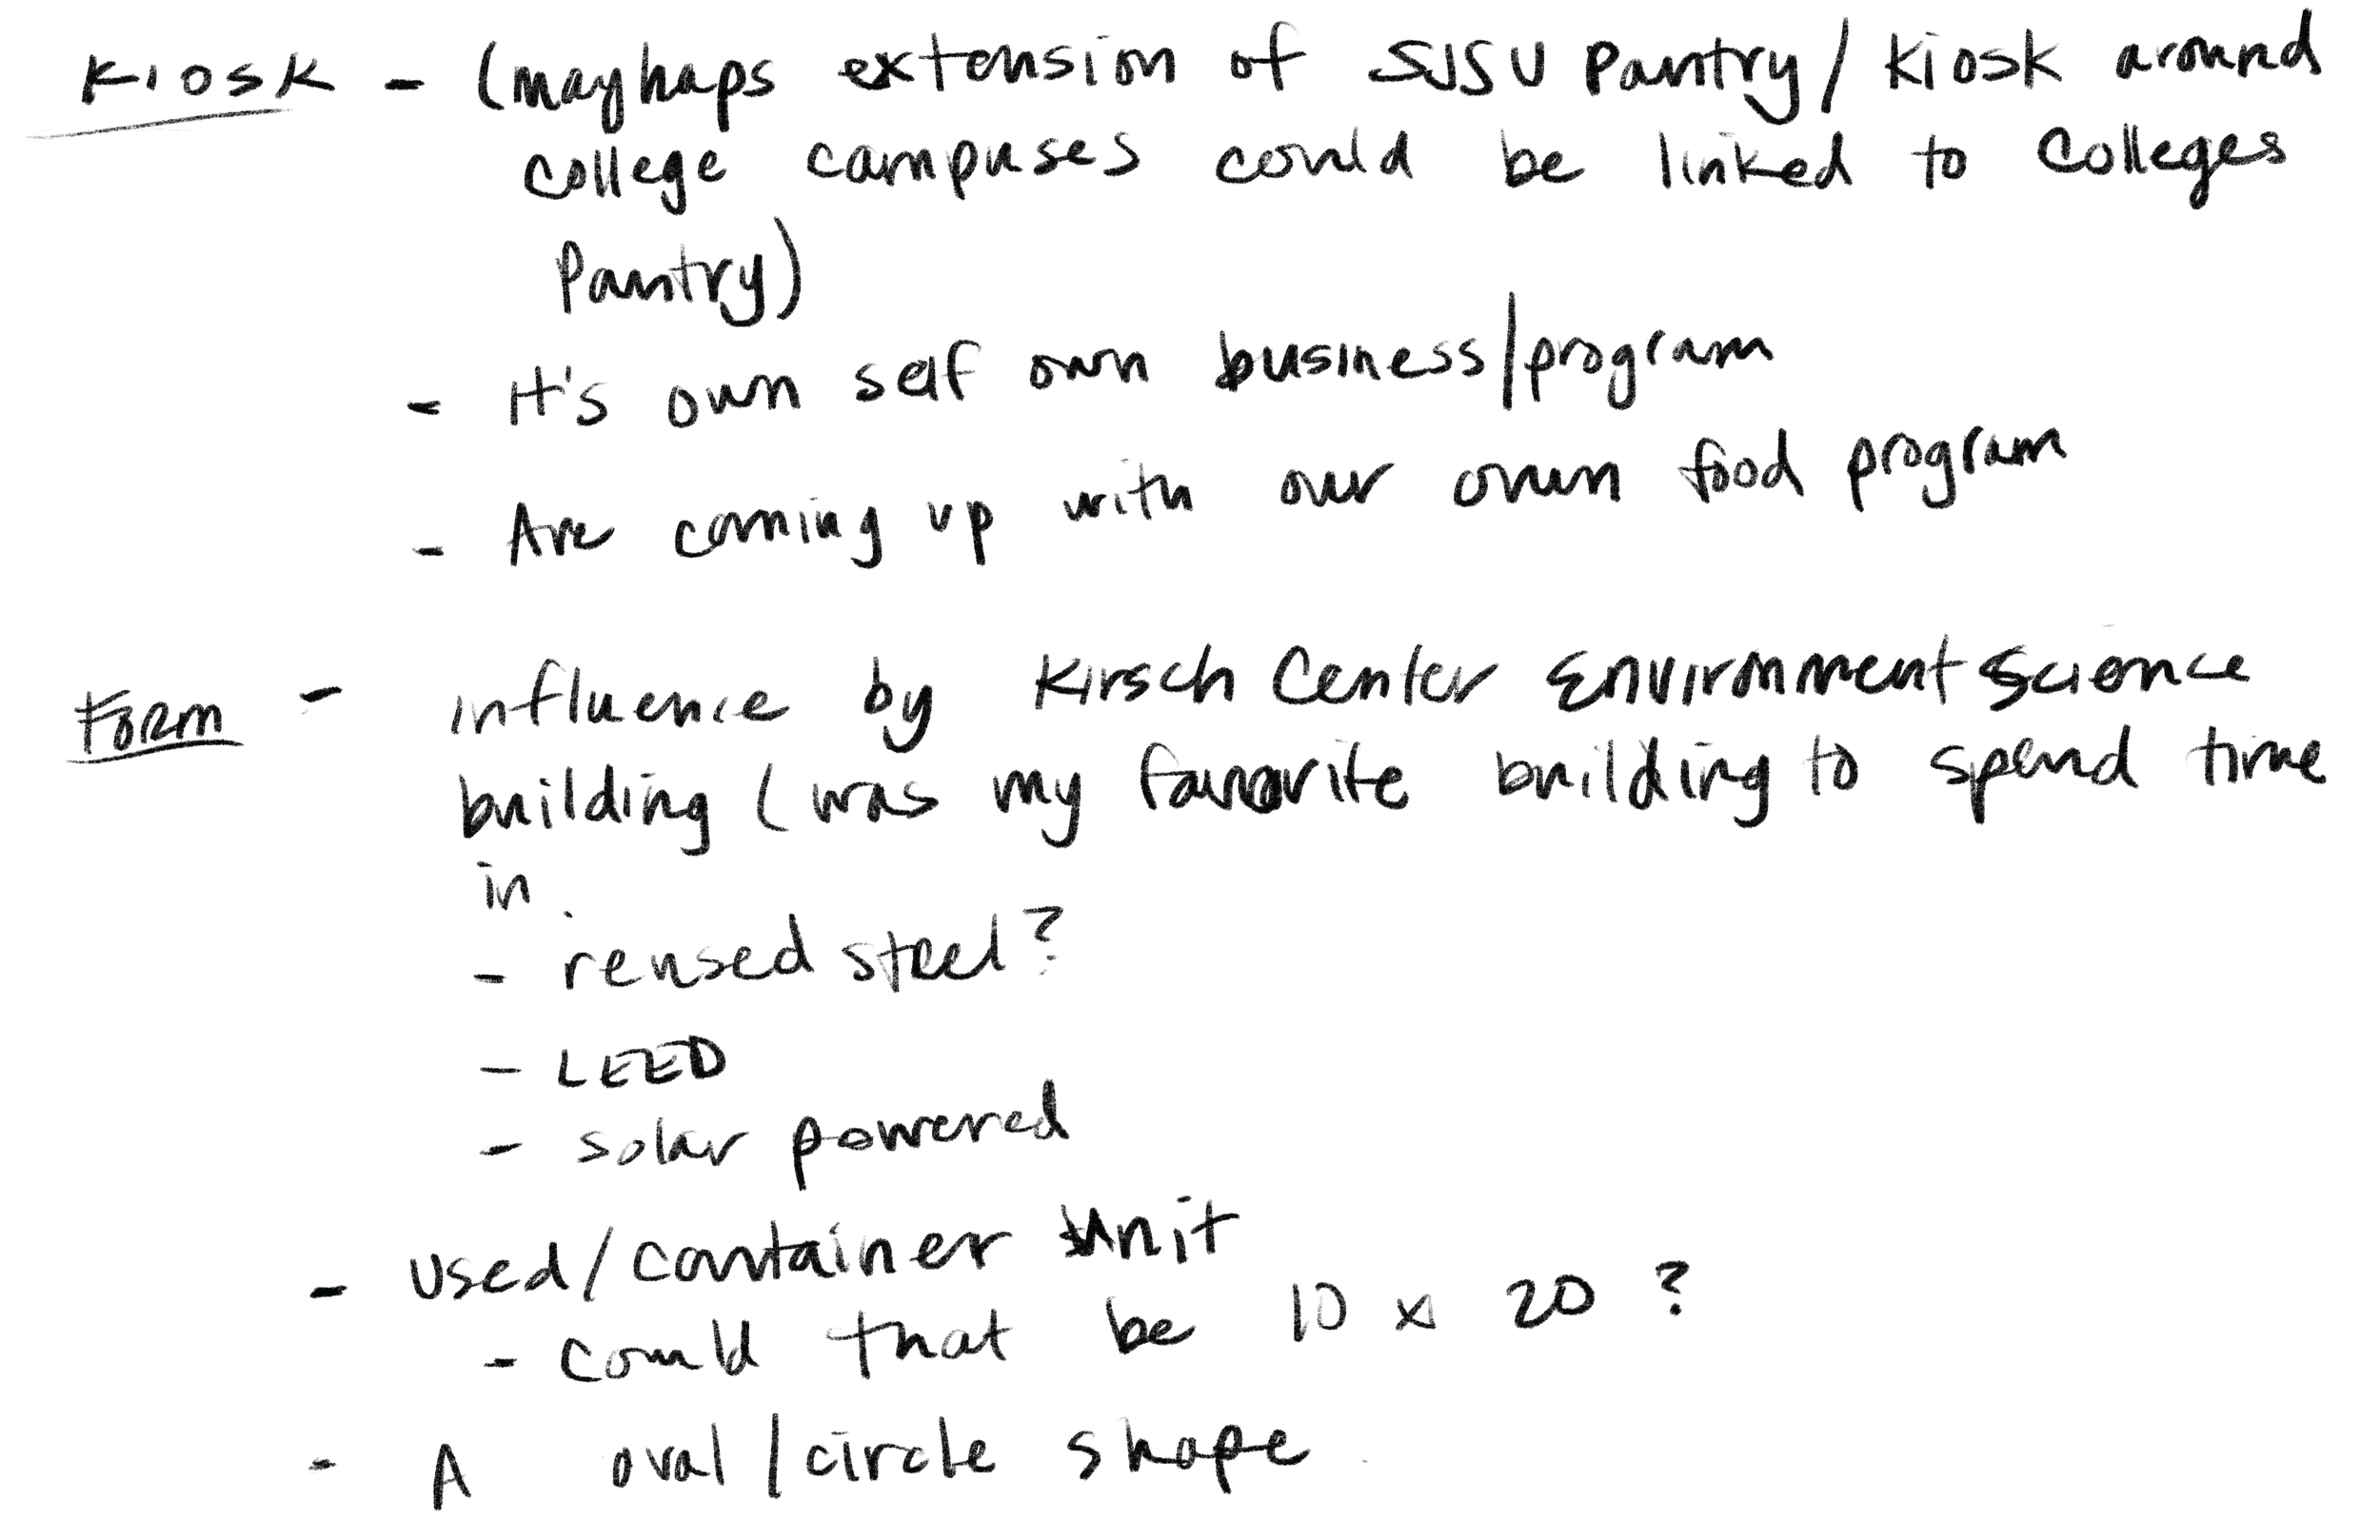 KIOSK - (mayhaps extension of SJSU Pantry/Kiosk around
college campuses could be linked to Colleges
Pantry)
- It's own self own business/program
- Are coming up with our own food program
FORM - influence by Kirsch Center Environment Science
building (was my favorite building to spend time
in
- reused steel?
- LEED
- solar powered
- Used/container Unit
- Could that be 10 x 20 ?
- A oval/circle shape